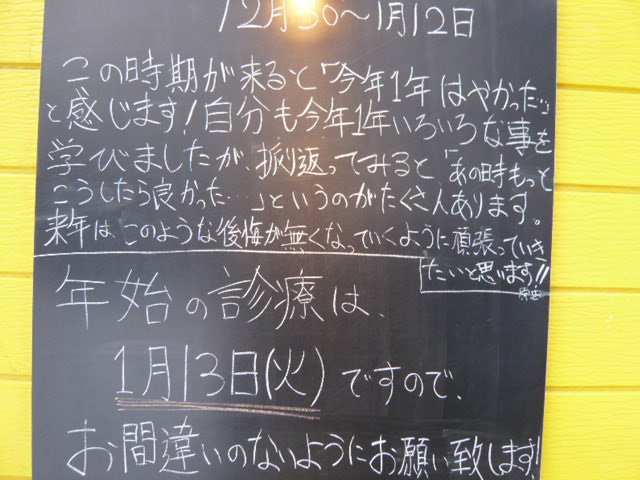 12月30〜1月12日
この時期が来ると「今年1年はやかった…」
と感じます!自分も今年1年いろいろな事を
学びましたが、振り返ってみると、「あの時もっと
こうしたら良かった…」というのがたくさんあります。
来年はこのような後悔が無くなっていくように頑張っていき
たいと思います!!
原田
年始の診療は、
1月13日(火)ですので、
お間違いのないようにお願い致します!